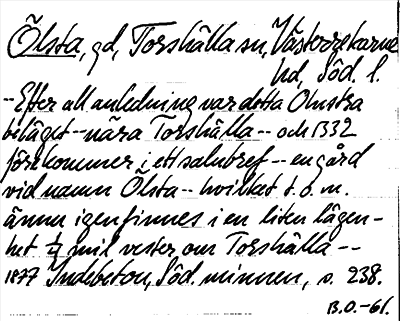 Ölsta, gd, Torshälla sn, Västerrekarne
hd, Söd. l.
-- Efter all anledning var detta Olustra
beläget -- nära Torshälla -- och 1332
förekommer i ett salubref -- en gård
vid namn Ölsta -- hvilket t. o. m.
ännu igenfinnes i en liten lägen-
het ¼ mil vester om Torshälla --
1877 Indebetou, Söd. minnen, s. 238.
B.O. -61.